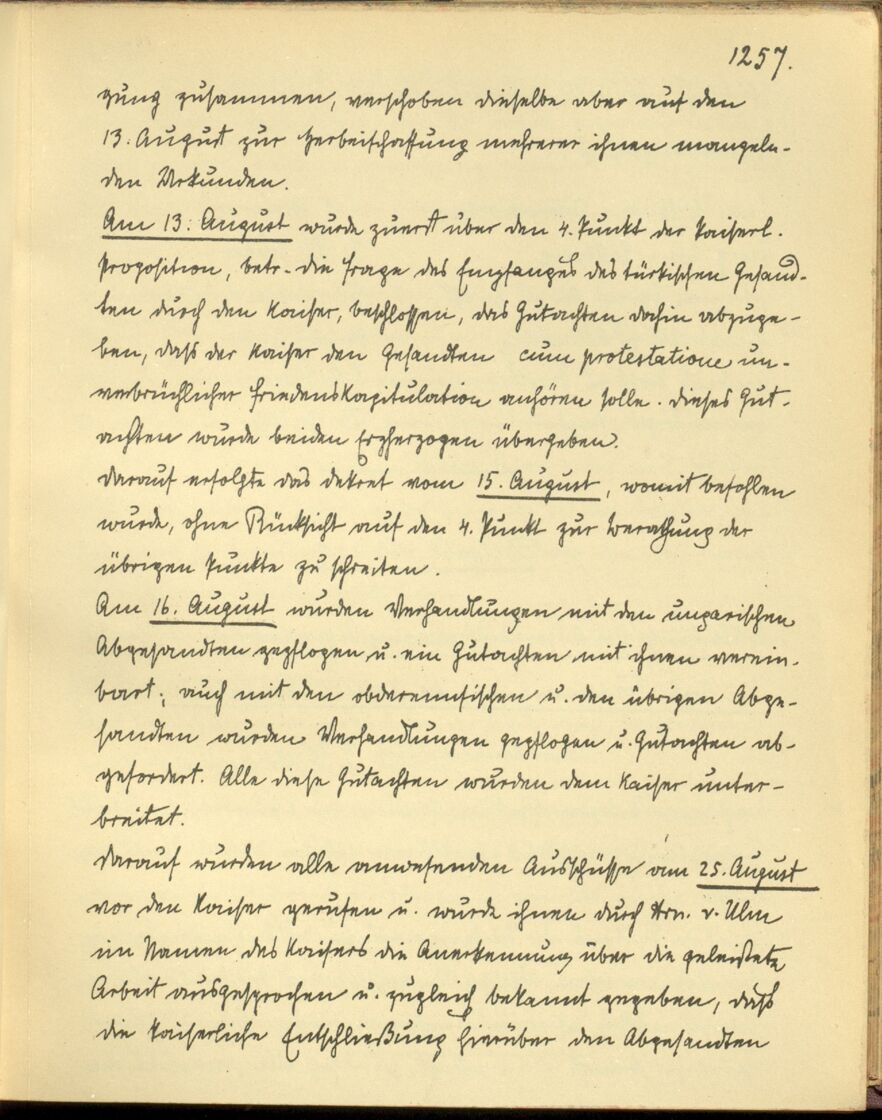 1257.
gung zusammen, verschoben dieselbe aber auf den
13. August zur Herbeischaffung mehrerer ihnen mangeln-
den Urkunden.
Am 13. August wurde zuerst über den 4. Punkt der kaiserl.
Proposition, betr. die Frage des Empfanges des türkischen Gesand-
ten durch den Kaiser, beschlossen, das Gutachten dahin abzuge-
ben, dass der Kaiser den Gesandten cum protestatione un-
verbrüchlicher Friedenskapitulation anhören solle. Dieses Gut-
achten wurde beiden Erzherzogen übergeben.
Darauf erfolgte das Dekret vom 15. August, womit befohlen
wurde, ohne Rücksicht auf den 4. Punkt zur Berathung der
übrigen Punkte zu schreiten.
Am 16. August wurden Verhandlungen mit den ungarischen
Abgesandten gepflogen u. ein Gutachten mit ihnen verein-
bart; auch mit den obderennsischen u. den übrigen Abge-
sandten wurden Verhandlungen gepflogen u. Gutachten ab-
gefordert. Alle diese Gutachten wurden dem Kaiser unter-
breitet.
Darauf wurden alle anwesenden Ausschüsse am 25. August
vor den Kaiser gerufen u. wurde ihnen durch Hrn. v. Ulm
im Namen des Kaisers die Anerkennung über die geleistete
Arbeit ausgesprochen u. zugleich bekannt gegeben, dass
die kaiserliche Entschließung hierüber den Abgesandten